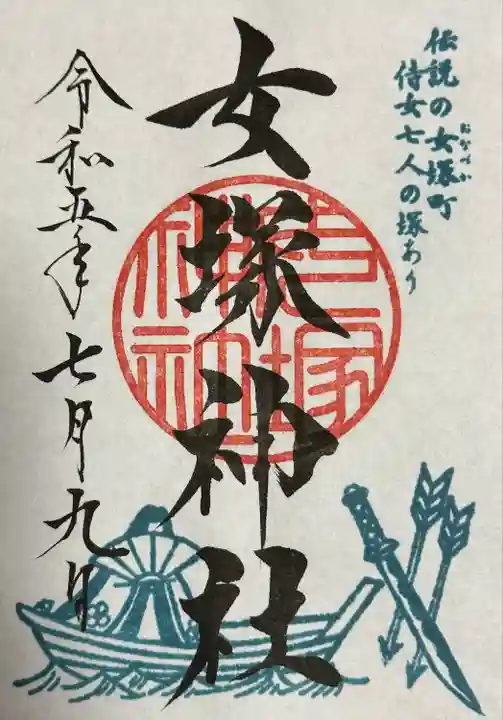 伝説の女塚町
おなづか
侍女七人の塚あり
女塚神社
令和五年七月九日